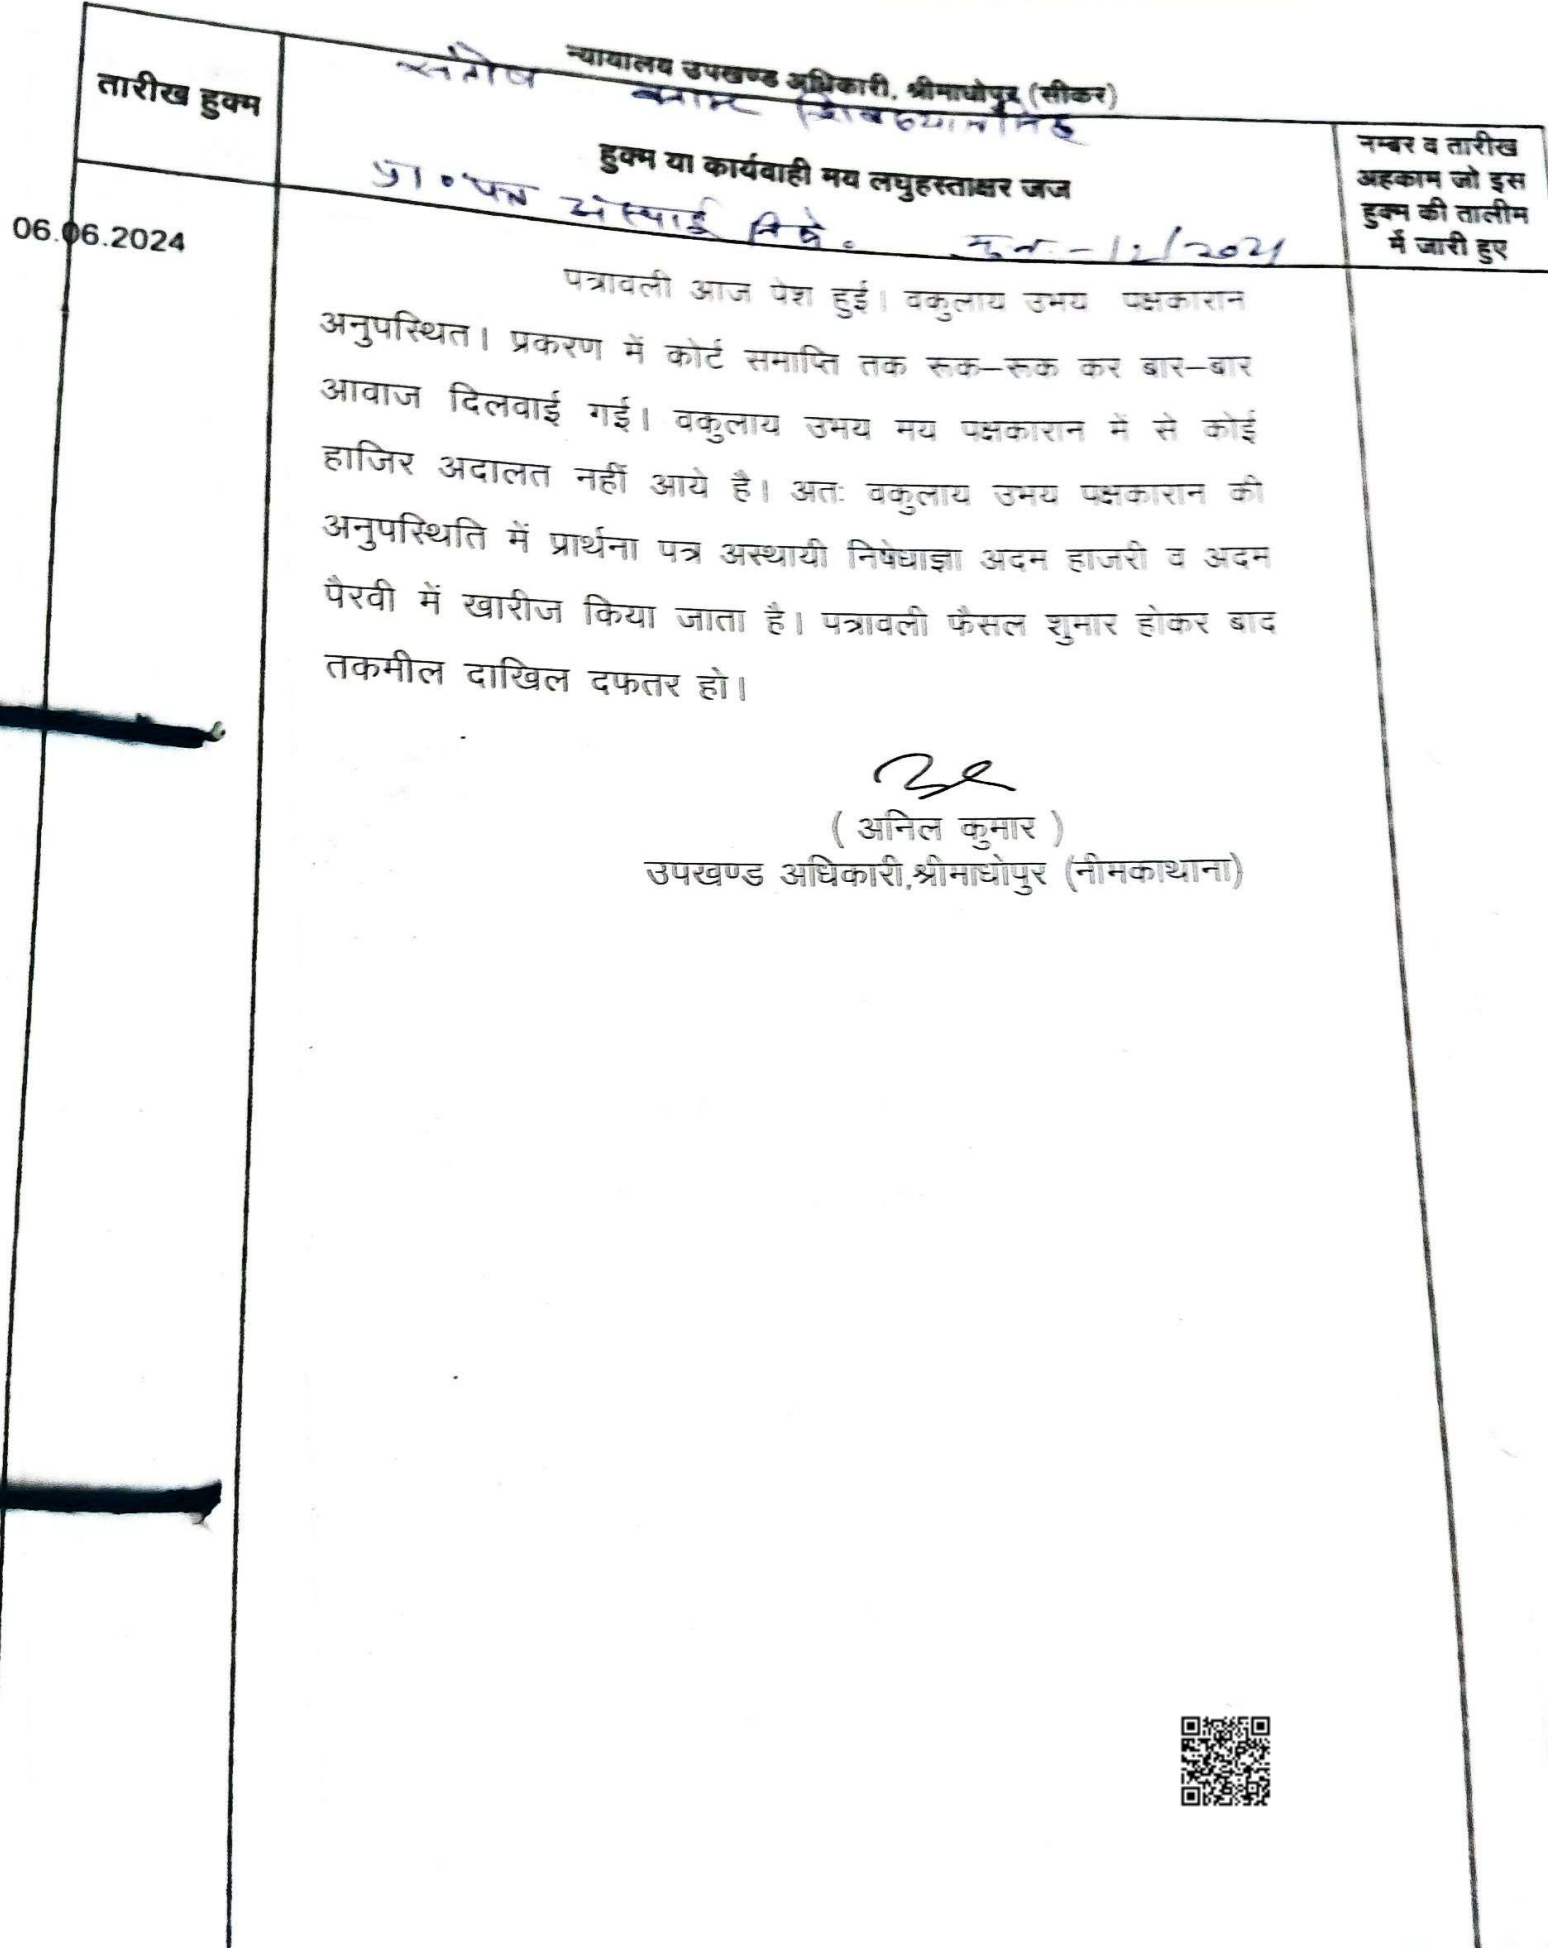 तारीख हुक्म
न्यायालय उपखण्ड अधिकारी, श्रीमाधोपुर (सीकर)
संतोष बनाम शिवध्यानसिंह
हुक्म या कार्यवाही मय लघुहस्ताक्षर जज
प्रा० पत्र अस्थाई निषे०
नम्बर व तारीख
अहकाम जो इस
हुक्म की तालीम
में जारी हुए
06.06.2024
पत्रावली आज पेश हुई। वकुलाय उभय पक्षकारान
अनुपस्थित। प्रकरण में कोर्ट समाप्ति तक रूक–रूक कर बार–बार
आवाज दिलवाई गई। वकुलाय उभय मय पक्षकारान में से कोई
हाजिर अदालत नहीं आये है। अतः वकुलाय उभय पक्षकारान की
अनुपस्थिति में प्रार्थना पत्र अस्थायी निषेधाज्ञा अदम हाजरी व अदम
पैरवी में खारीज किया जाता है। पत्रावली फैसल शुमार होकर बाद
तकमील दाखिल दफतर हो।
( अनिल कुमार )
उपखण्ड अधिकारी,श्रीमाधोपुर (नीमकाथाना)